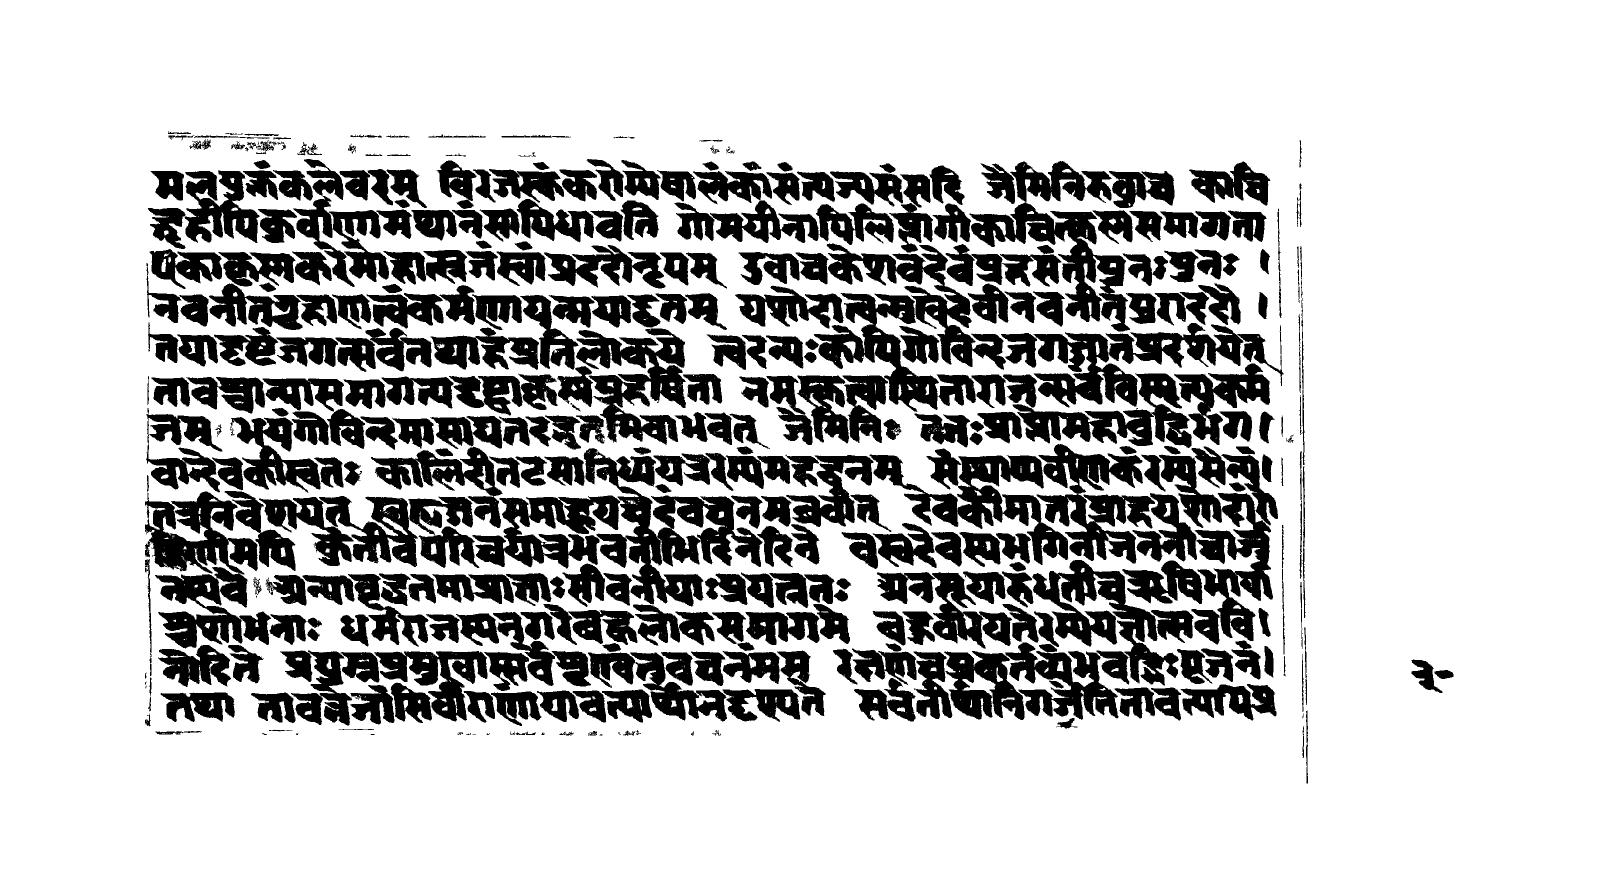 मलयुक्तंकलेवरम् विरजस्कंकरोम्येषालंकांसंत्यज्यसंसदि जैमिनिरुवाच काचि
द्गृहीपिकुर्वाणामंथानंसापिधावति गोमयीनापिलिप्तांगीकाचित्कृष्मसमागता
एकाकृस्मकरेमोहात्स्रजंस्वांप्रददौनृपम् उवाचकेशवंदेवंप्रहसंतीपुनःपुनः ।
नवनीतंगृहाणत्वंकर्मणायन्मयाहृतम् यशोदात्वन्मुखेदेवीनवनीतंपुराददौ ।
तयादृष्टंजगत्सर्वंतथाहंप्रतिलोकये त्वदन्यःकोपिगोविन्दजगज्जातंप्रदर्शयेत्
तावच्चान्यासमागत्यदृष्ट्वाकृस्मंप्रहर्षिता नमस्कृत्वास्थिताराजन्सर्वविस्मृत्यकर्म
जम् भयंगोविन्दमासाद्यतदद्भुतमिवाभवत् जैमिनिः ततःप्राप्तोमहाबुद्धिर्भग ।
वान्देवकीसुतः कालिंदीतटसान्निध्यंयत्ररम्यंमहद्वनम् संस्थाप्यवीणाकंरम्यंसैन्यं ।
तत्रनिवेशयत् स्वसुहृज्जनंसमाहूयचेदंवचनमब्रवीत् देवकींमातरंप्राहयशोदांरो
हिणीमपि कुंतीवैपरिचर्यात्रभवतीभिर्दिनेदिने वसुदेवस्यभगिनीजननीचार्जु
नस्यवै अन्यावृद्धतमाप्राप्ताःसीवनीयाःप्रयत्नतः अनसूयारुंधतीचऋषिभार्या
सुशोभनाः धर्मराजस्यनगरेबहुलोकसमागमे वह्नवीभयतेरम्येयज्ञोत्सववि ।
नोदिते प्रद्युम्नप्रमुखास्सर्वेशृण्वंतुवचनंमम रक्षणंचप्रकर्तव्यंभवद्भिःपूजनं ।
तथा तावत्तेजांसिवीराणांयावत्पार्थोनदृश्यते सर्वतीर्थानिगर्जंतितावत्पापिप्र